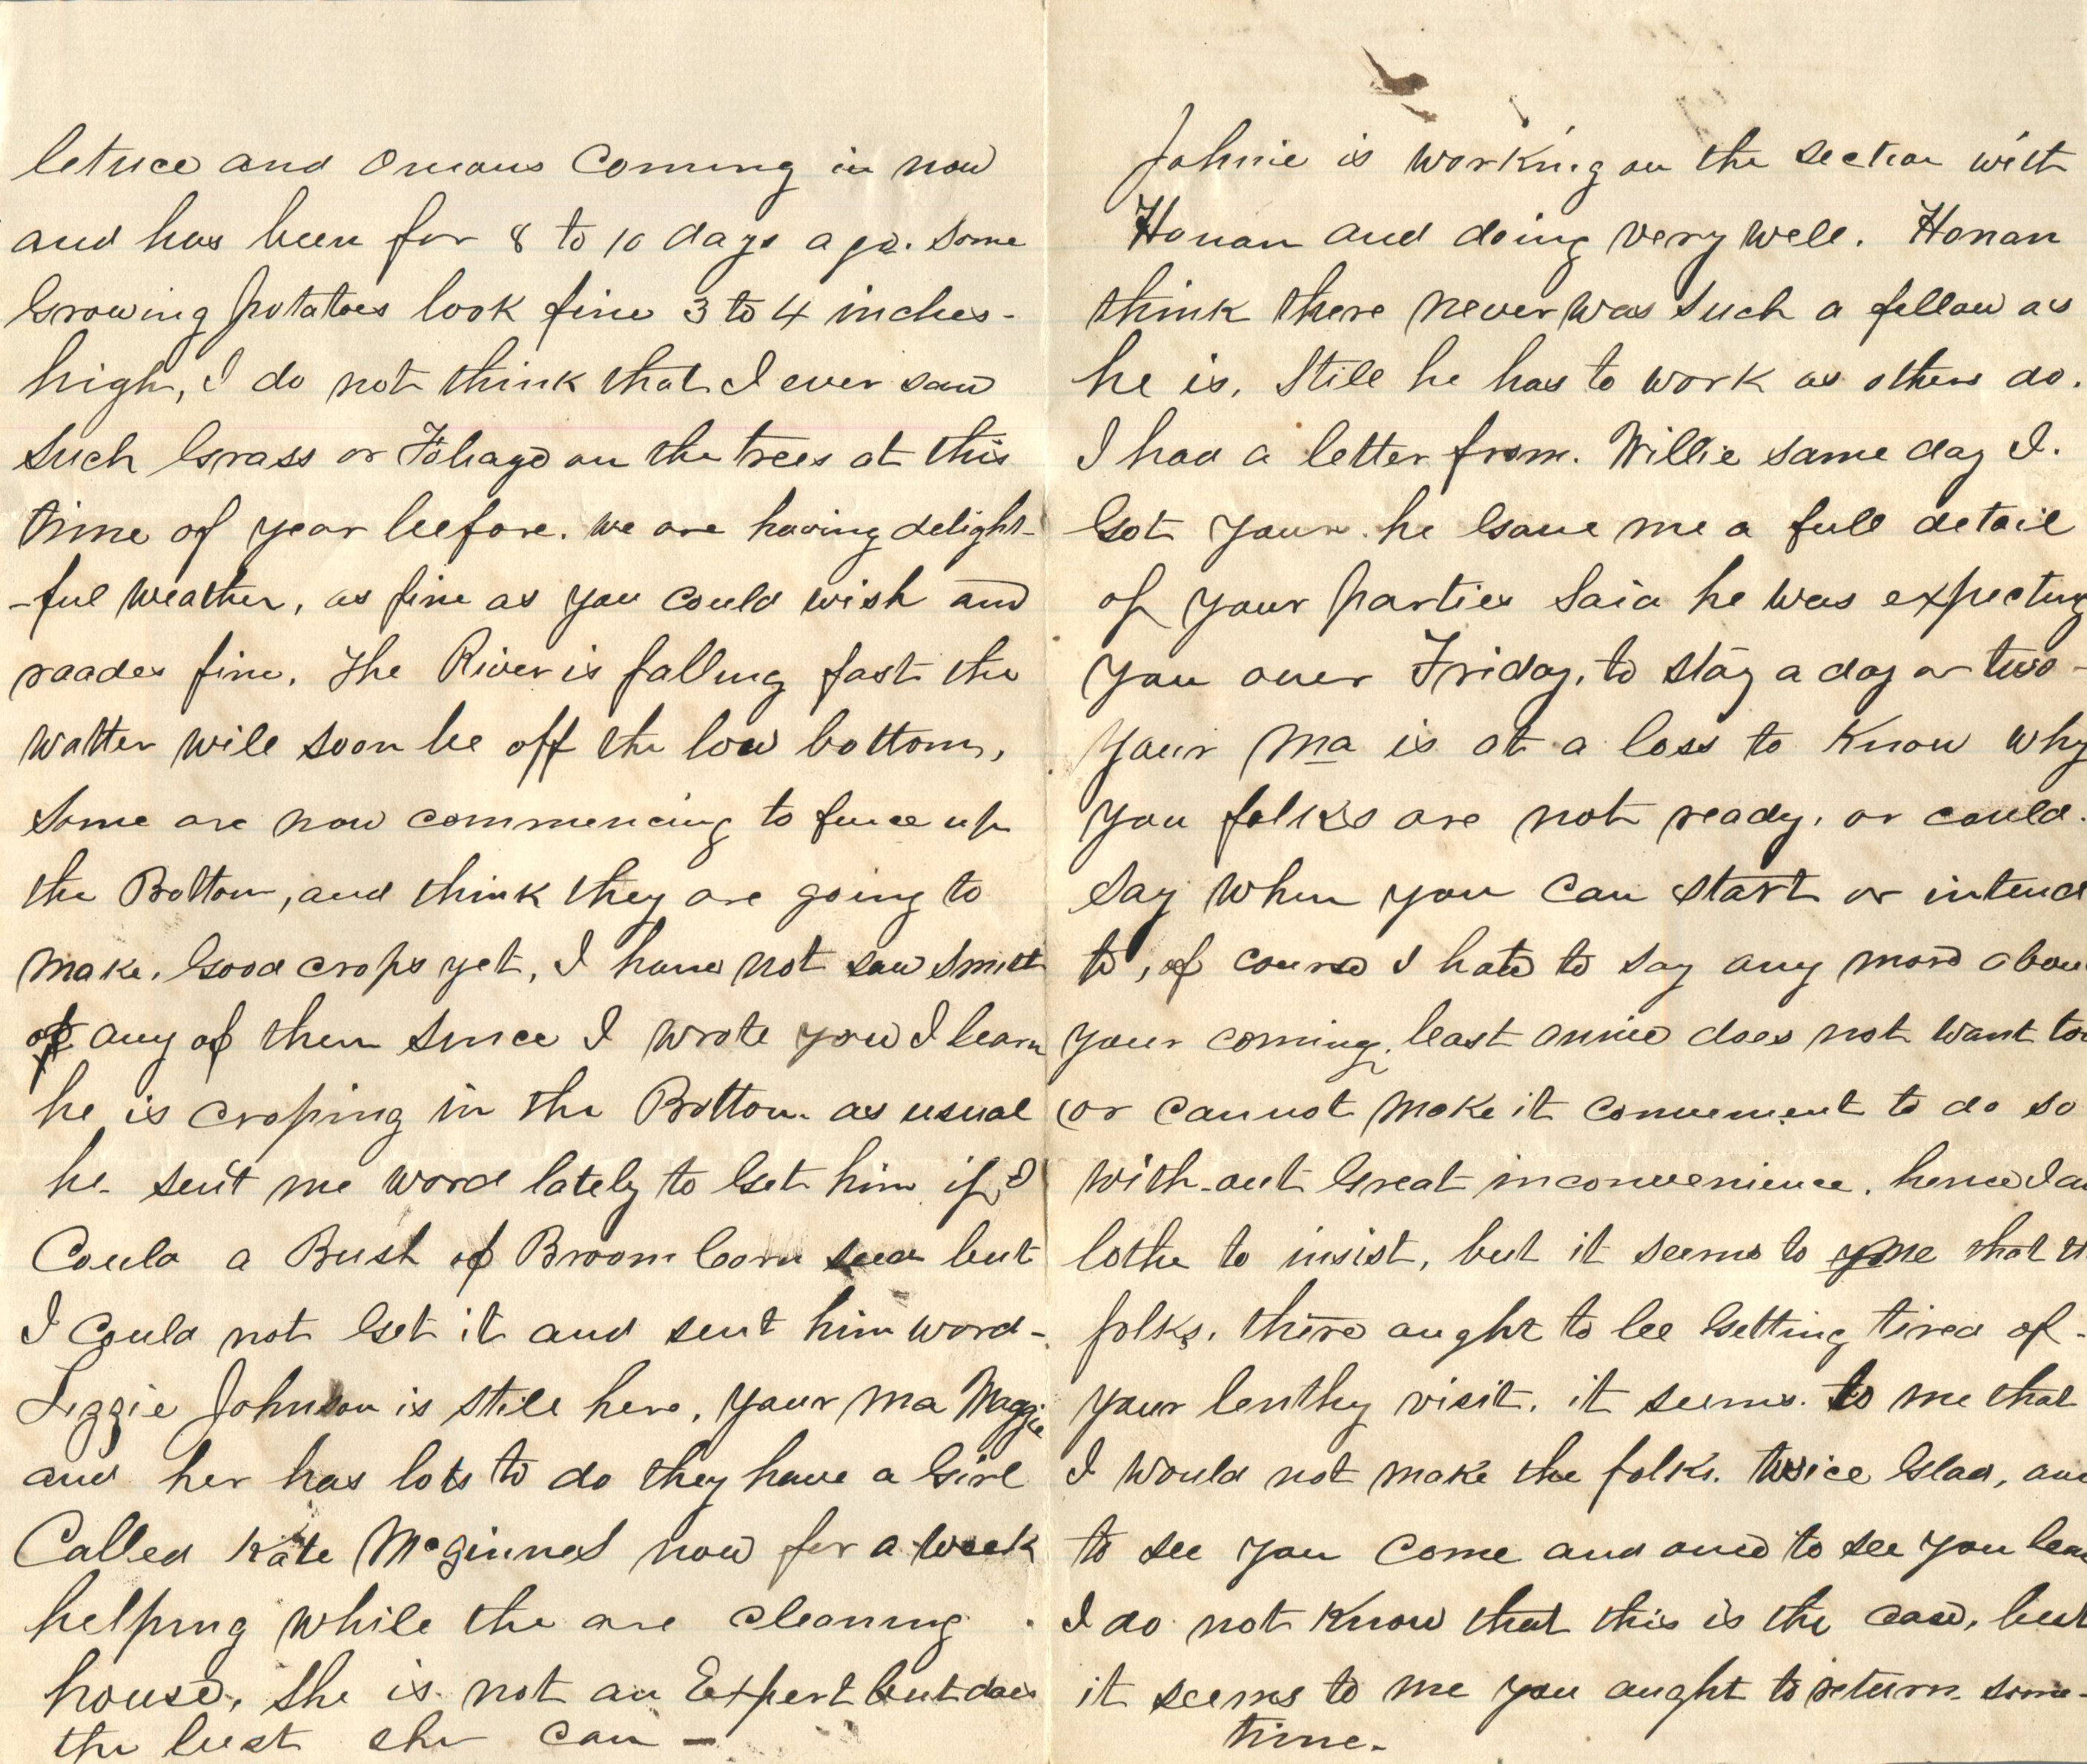 letuce and Onions Coming in now
and has been for 8 to 10 days ago. Some
Growing potatoes look fine 3 to 4 inches-
high, I do not think that I ever saw
Such Grass or Foliage on the trees at this
time of year beefore. we are having delight-
-ful weather, as fine as you could wish and
roades fine. The River is falling fast the
watter will soon be off the low bottoms,
Some are now commencing to fence up
the Bottom, and think they are going to
make. Good crops yet, I have not saw Smith
or any of them Since I wrote you I learn
he is croping in the Bottom as usual
he. sent me word lately to Get him if I
Could a Bush of Broom Corn seed but
I Could not Get it and sent him word-
Lizzie Johnson is still here, your ma Maggie
and her has lots to do they have a Girl
Called Kate McGinnes now for a week
helping while the are cleaning
house, She is not an Expert but does
the best she can -
Johnie is working on the section with
Honan and doing very well. Honan
think there never was Such a fellow as
he is, Still he has to work as others do.
I had a letter from. Willie same day I.
Got your. he Gave me a full detail
of your parties Said he was expecting
you over Friday, to stay a day or two-
your ma is at a loss to Know why
you folks are not ready, or could.
Say when you can start or intend
to, of course I hate to say any more abou
your coming, least annie does not want to
or cannot make it convenient to do so
with-out Great inconvenience. hence I am
lothe to insist, but it seems to me that
folks. there aught to bee Getting tired of-
your lenthy visit. it seems. to me that
I would not make the folks. twice Glad, one
to see you come and one to see you leave
I do not Know that this is the case, but
it seems to me you aught to return some-
time.